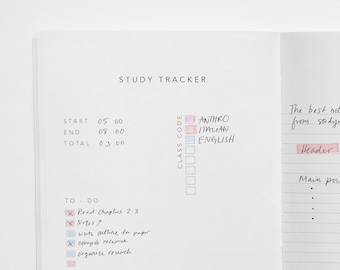 STUDY TRACKER
START 05 00
END 08 00
TOTAL 03 00
CLASS CODE
ANTHRO
ITALIAN
ENGLISH
TO - DO
Read Chapters 2-3
Notes
write outline for paper
compile research
organize research
The best not
from studyi
Header
Main poi